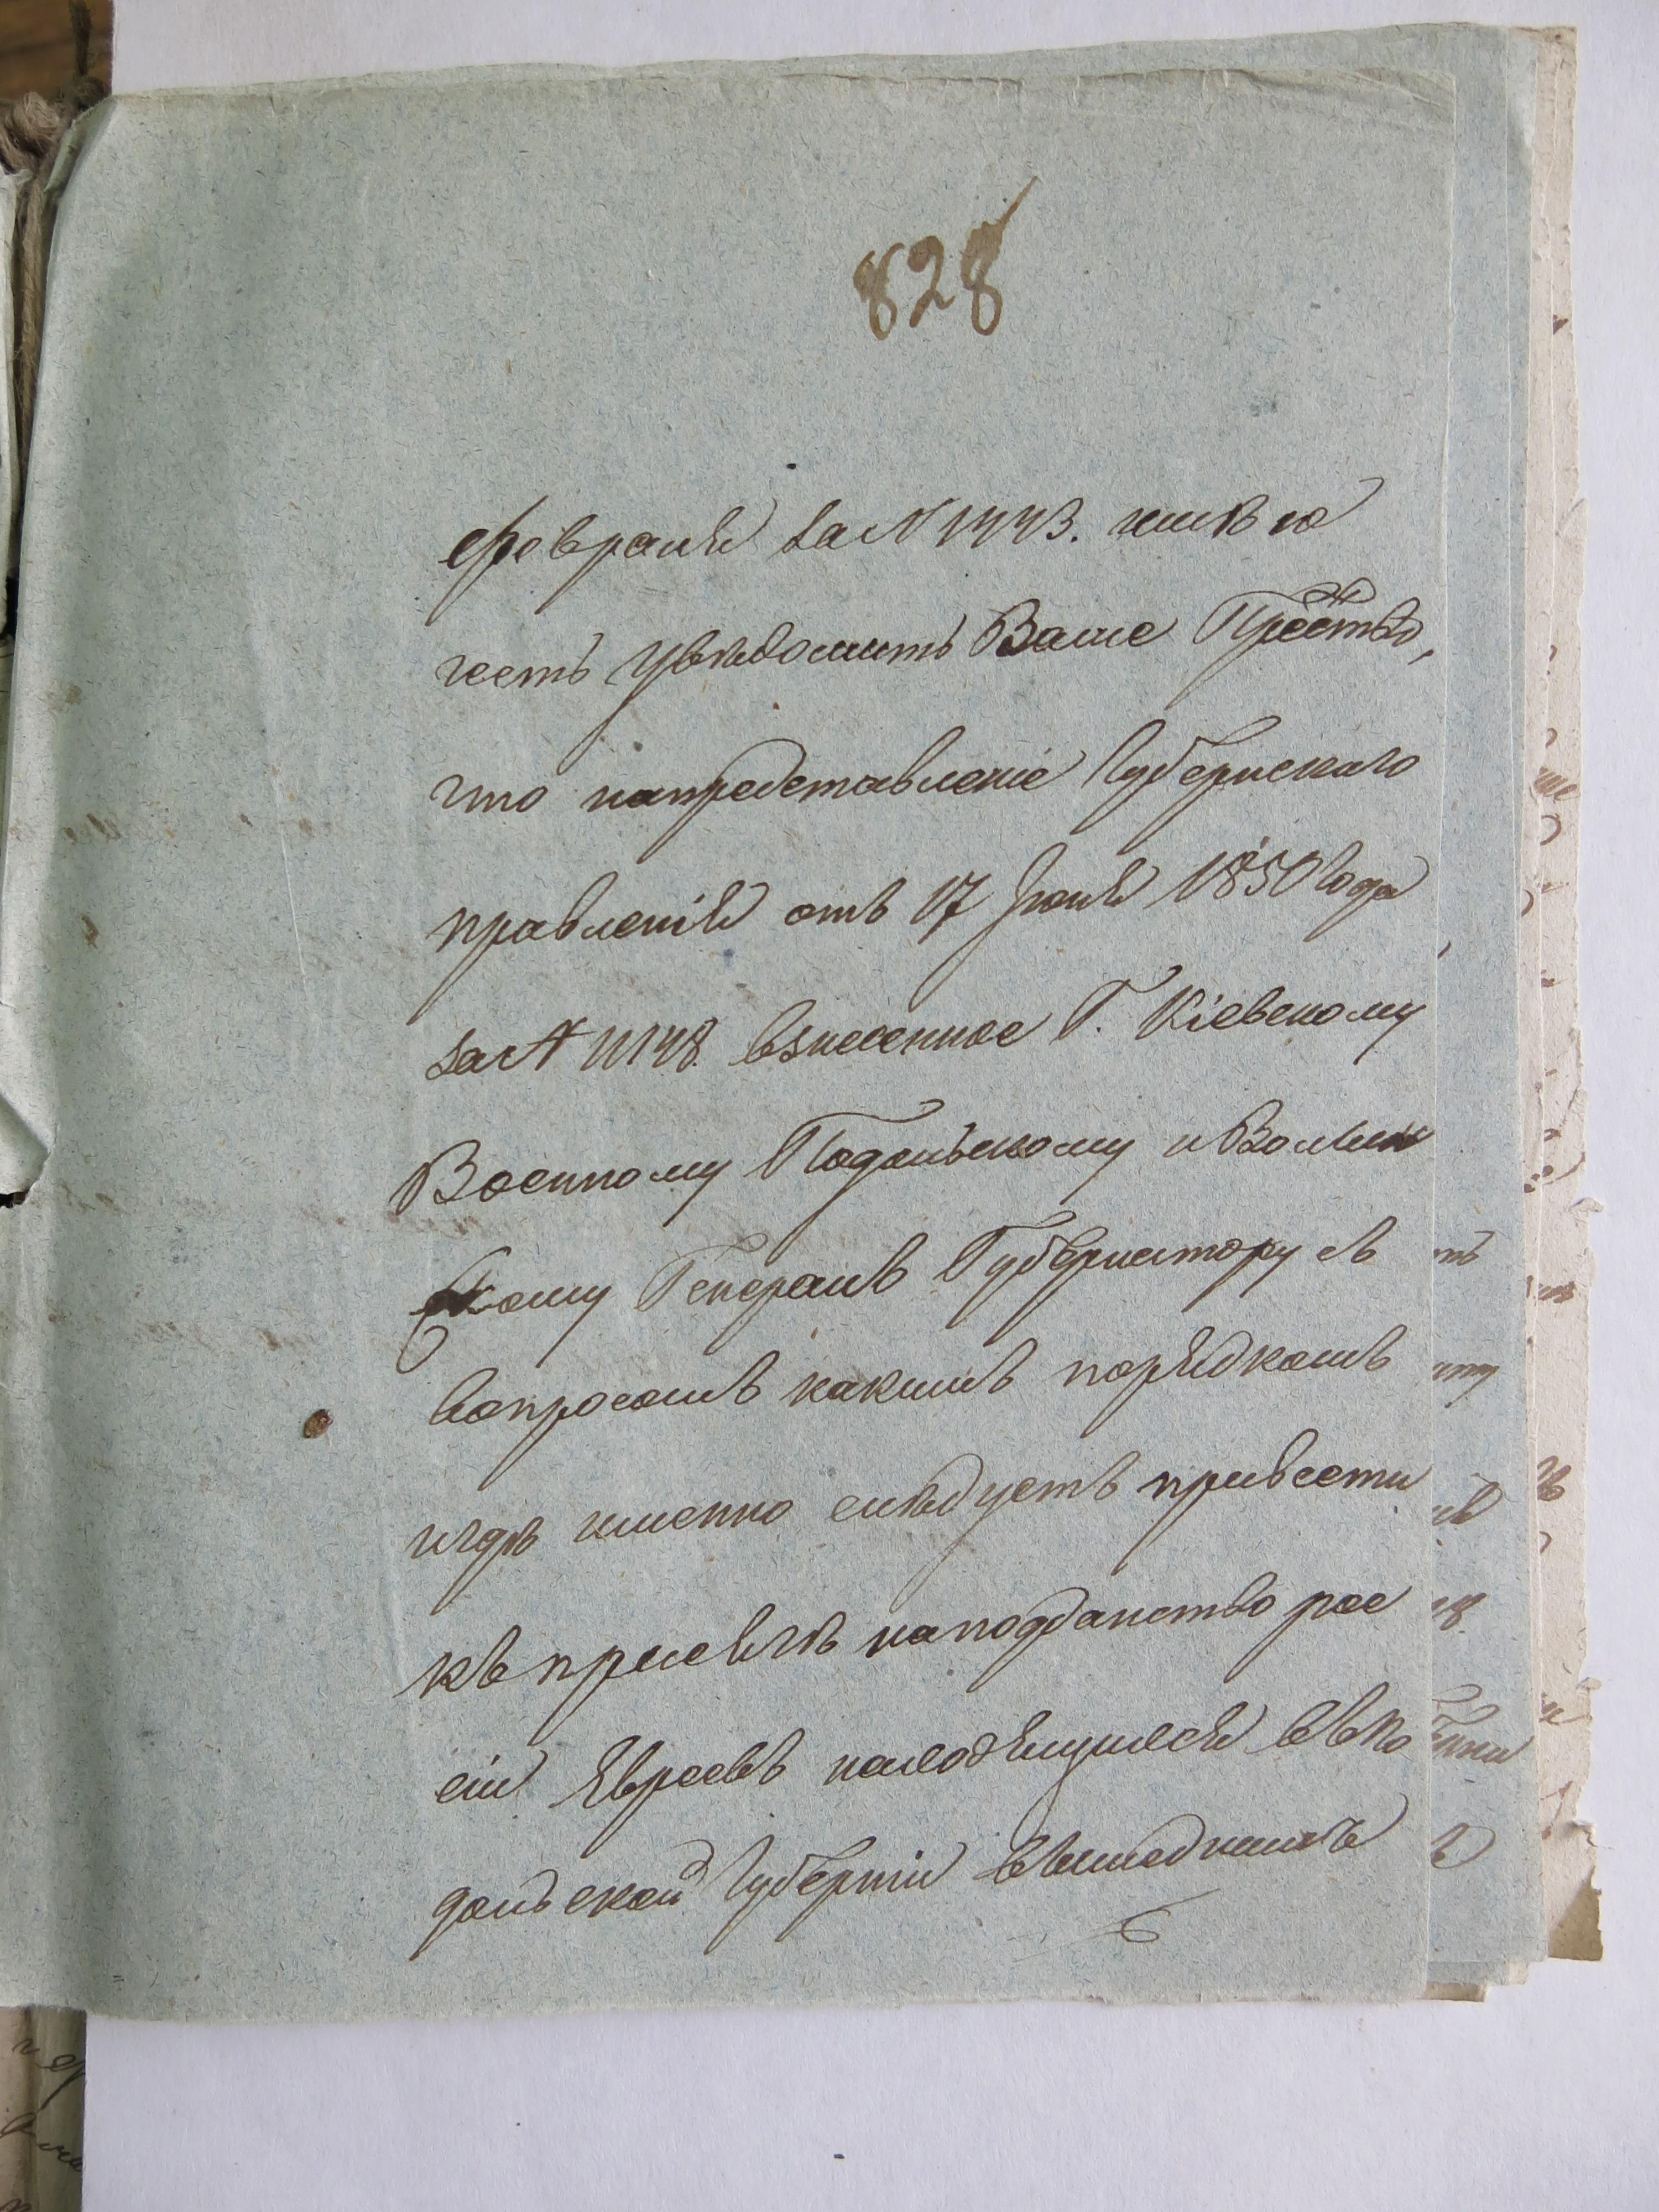 828
февраля за N 1443. имѣю
честь увѣдомить Ваше Прество,
что напредставленіе Губернскаго
правленія отъ 17 Іюня 1850 года
за N 11148. взнесенное Г. Кіевскому
Военному Подольскому и Волын
скому Генералъ Губернатору съ
вопросомъ какимъ порядкомъ
игдѣ именно слѣдуетъ привести
къ присягѣ наподданство рос
сіи Явреевъ находящихся въ По
дольской Губерніи вышедшихъ